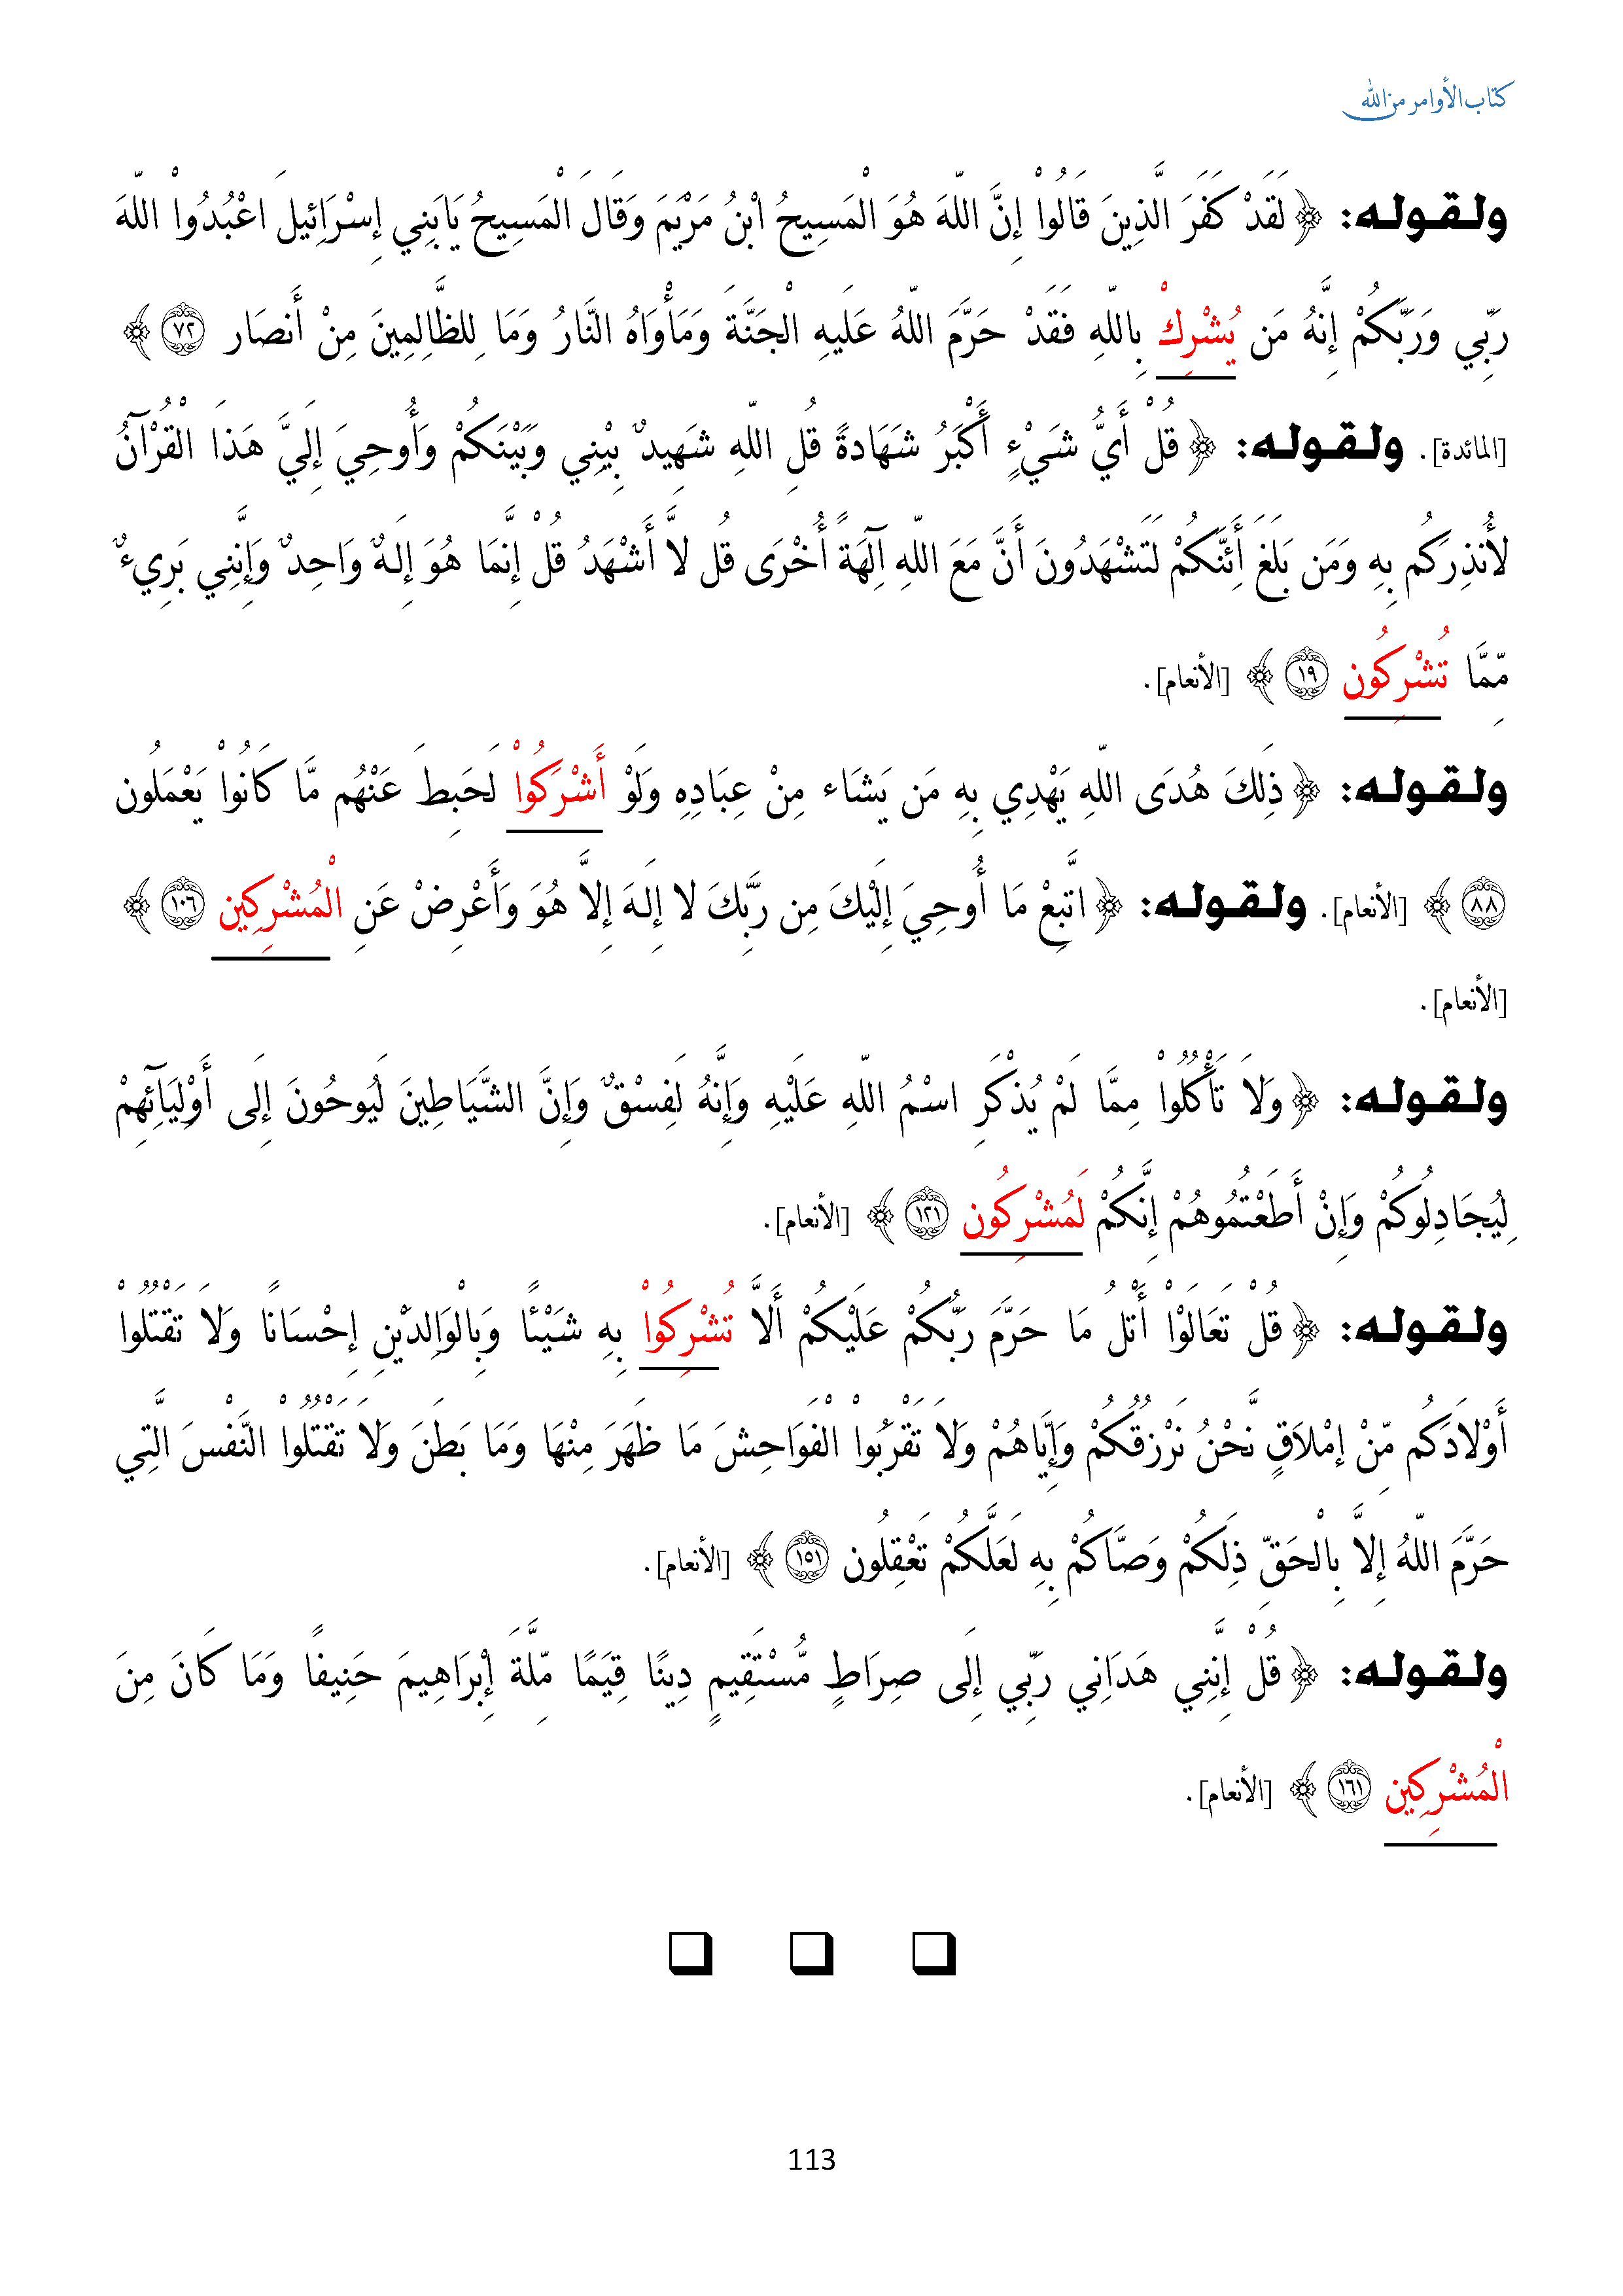 كتاب الأوامر من الله
ولقوله: ﴿لَقَدْ كَفَرَ الَّذِينَ قَالُواْ إِنَّ اللّهَ هُوَ الْمَسِيحُ ابْنُ مَرْيَمَ وَقَالَ الْمَسِيحُ يَابَنِي إِسْرَائِيلَ اعْبُدُواْ اللّهَ
رَبِّي وَرَبَّكُمْ إِنَّهُ مَن يُشْرِكْ بِاللّهِ فَقَدْ حَرَّمَ اللّهُ عَلَيهِ الْجَنَّةَ وَمَأْوَاهُ النَّارُ وَمَا لِلظَّالِمِينَ مِنْ أَنصَار ٧٢﴾
[المائدة]. ولقوله: ﴿قُلْ أَيُّ شَيْءٍ أَكْبَرُ شَهَادةً قُلِ اللّهِ شَهِيدٌ بِيْنِي وَبَيْنَكُمْ وَأُوحِيَ إِلَيَّ هَذَا الْقُرْآنُ
لأُنذِرَكُم بِهِ وَمَن بَلَغَ أَئِنَّكُمْ لَتَشْهَدُونَ أَنَّ مَعَ اللّهِ آلِهَةً أُخْرَى قُل لاَّ أَشْهَدُ قُلْ إِنَّمَا هُوَ إِلَهٌ وَاحِدٌ وَإِنَّنِي بَرِيءٌ
مِّمَّا تُشْرِكُون ١٩﴾ [الأنعام].
ولقوله: ﴿ذَلِكَ هُدَى اللّهِ يَهْدِي بِهِ مَن يَشَاء مِنْ عِبَادِهِ وَلَوْ أَشْرَكُواْ لَحَبِطَ عَنْهُم مَّا كَانُواْ يَعْمَلُون
٨٨﴾ [الأنعام]. ولقوله: ﴿اتَّبِعْ مَا أُوحِيَ إِلَيْكَ مِن رَّبِّكَ لا إِلَهَ إِلاَّ هُوَ وَأَعْرِضْ عَنِ الْمُشْرِكِين ١٠٦﴾
[الأنعام].
ولقوله: ﴿وَلاَ تَأْكُلُواْ مِمَّا لَمْ يُذْكَرِ اسْمُ اللّهِ عَلَيْهِ وَإِنَّهُ لَفِسْقٌ وَإِنَّ الشَّيَاطِينَ لَيُوحُونَ إِلَى أَوْلِيَآئِهِمْ
لِيُجَادِلُوكُمْ وَإِنْ أَطَعْتُمُوهُمْ إِنَّكُمْ لَمُشْرِكُون ١٢١﴾ [الأنعام].
ولقوله: ﴿قُلْ تَعَالَوْاْ أَتْلُ مَا حَرَّمَ رَبُّكُمْ عَلَيْكُمْ أَلاَّ تُشْرِكُواْ بِهِ شَيْئًا وَبِالْوَالِدَيْنِ إِحْسَانًا وَلاَ تَقْتُلُواْ
أَوْلاَدَكُم مِّنْ إمْلاَقٍ نَّحْنُ نَرْزُقُكُمْ وَإِيَّاهُمْ وَلاَ تَقْرَبُواْ الْفَوَاحِشَ مَا ظَهَرَ مِنْهَا وَمَا بَطَنَ وَلاَ تَقْتُلُواْ النَّفْسَ الَّتِي
حَرَّمَ اللّهُ إِلاَّ بِالْحَقِّ ذَلِكُمْ وَصَّاكُمْ بِهِ لَعَلَّكُمْ تَعْقِلُون ١٥١﴾ [الأنعام].
ولقوله: ﴿قُلْ إِنَّنِي هَدَانِي رَبِّي إِلَى صِرَاطٍ مُّسْتَقِيمٍ دِينًا قِيَمًا مِّلَّةَ إِبْرَاهِيمَ حَنِيفًا وَمَا كَانَ مِنَ
الْمُشْرِكِين ١٦١﴾ [الأنعام].
113